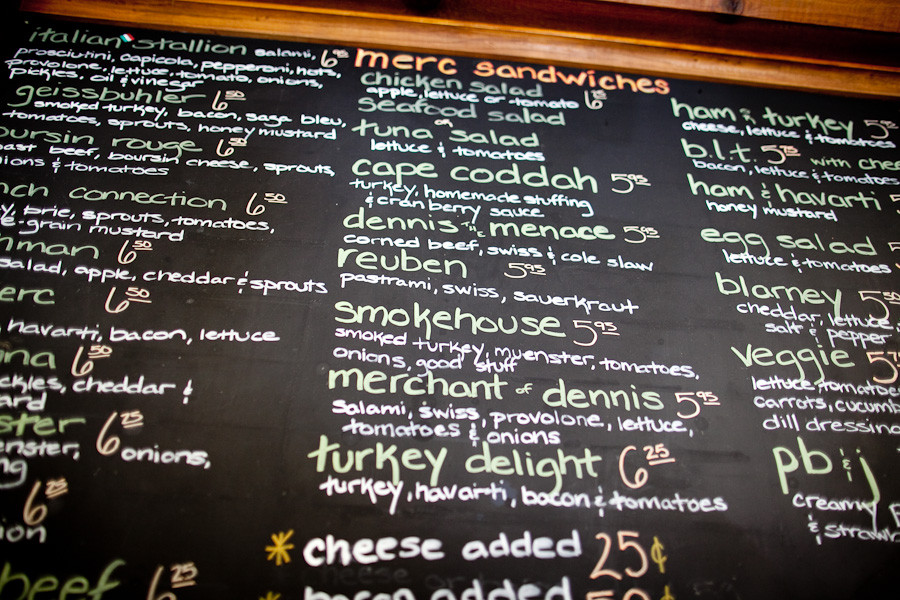 italian stallion salami, 6 95
prosciutini, capicola, pepperoni, hots,
provolone, lettuce, tomato, onions,
pickles, oil & vinegar
geissbuhler 6 50
smoked turkey, bacon, saga bleu,
tomatoes, sprouts, honey mustard
oursin rouge 6 50
oast beef, boursin cheese, sprouts,
ions & tomatoes
nch connection 6 50
y, brie, sprouts, tomatoes,
e grain mustard
hman 6 50
salad, apple, cheddar & sprouts
erc 6 50
havarti, bacon, lettuce
una 6 50
ckles, cheddar &
ard
ster 6 25
enster, onions,
ng
6 25
ion
beef 6 25
merc sandwiches
chicken salad
apple, lettuce or tomato 6 25
seafood salad
or
tuna salad
lettuce & tomatoes
cape coddah 5 95
turkey, homemade stuffing
& cranberry sauce
dennis the menace 5 95
corned beef, swiss & cole slaw
reuben 5 95
pastrami, swiss, sauerkraut
smokehouse 5 95
smoked turkey, muenster, tomatoes,
onions, good stuff
merchant of dennis 5 95
salami, swiss, provolone, lettuce,
tomatoes & onions
turkey delight 6 25
turkey, havarti, bacon & tomatoes
* cheese added 25¢
* bacon added 50¢
ham & turkey 5
cheese, lettuce & tomatoes
b.l.t. 5 75 with chee
bacon, lettuce & tomatoes
ham & havarti 5
honey mustard
egg salad 5
lettuce & tomatoes
blarney 5 50
cheddar, lettuce,
salt & pepper
veggie 5 7
lettuce, tomatoes
carrots, cucumb
dill dressing
pb & j
creamy P
& strawb